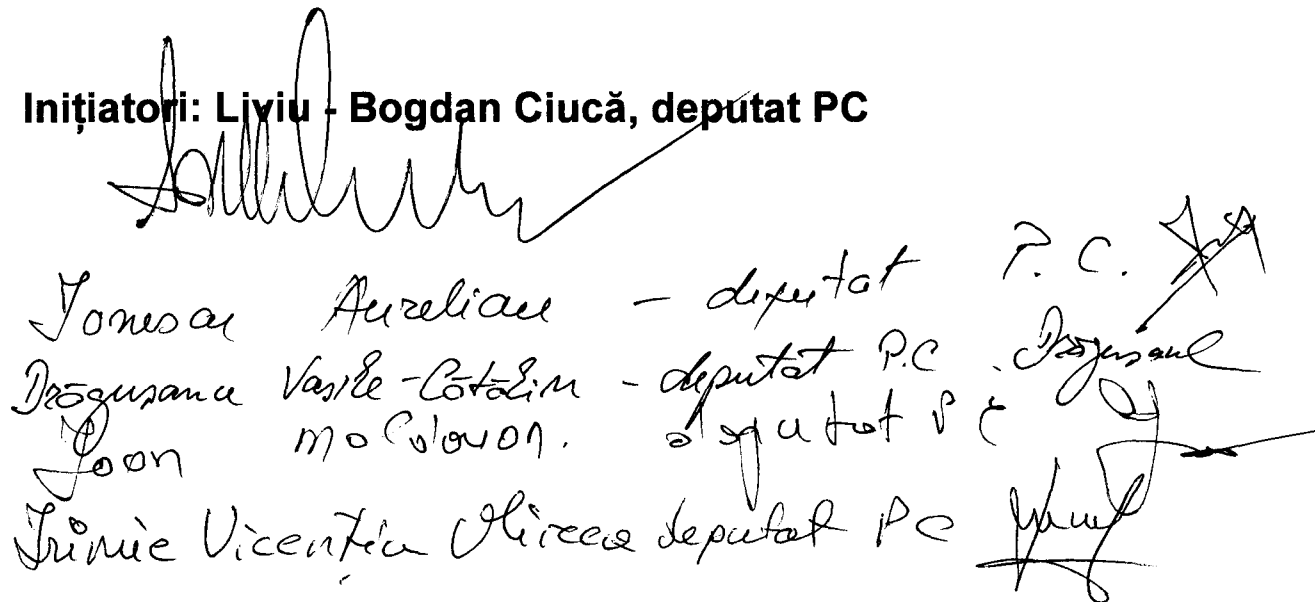 Inițiatori: Liviu - Bogdan Ciucă, deputat PC
Ionescu Aurelian - deputat P. C.
Drăgușanu Vasile-Cătălin - deputat P.C. Drăgușanu
Ioan Moldovan. deputat PC
Irimie Vicențiu Mircea deputat PC